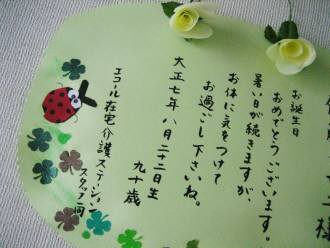 様
お誕生日
おめでとうございます。
暑い日が続きますが、
お体に気をつけて
お過ごし下さいね。
大正七年 八月二十二日生
九十歳
エコール在宅介護ステーション
スタッフ一同